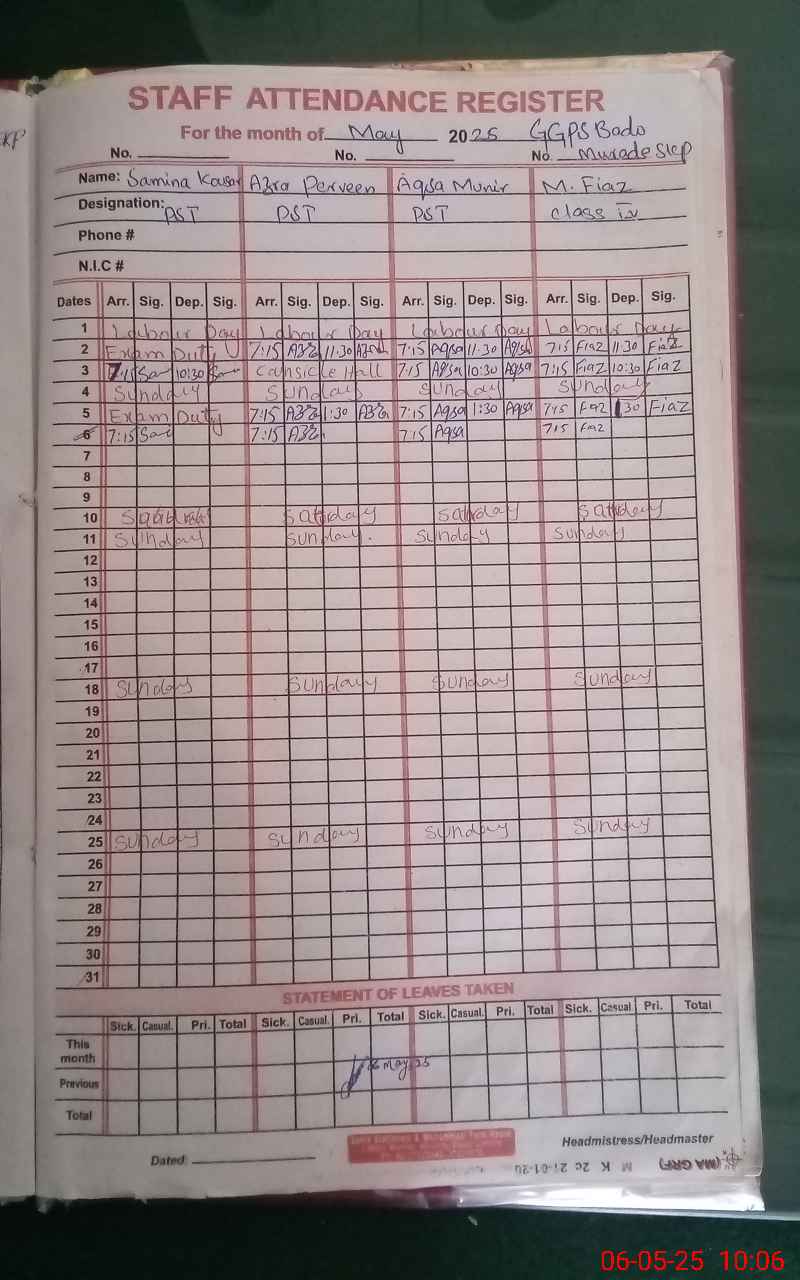 STAFF ATTENDANCE REGISTER
For the month of May 2025 GGPS Bado
No. No. No. Murade
Name: Samina Kausar Azra Perveen Aqsa Munir M. Fiaz
Designation: PST PST PST class iv
Phone #
N.I.C #
Dates Arr. Sig. Dep. Sig. Arr. Sig. Dep. Sig. Arr. Sig. Dep. Sig. Arr. Sig. Dep. Sig.
1 Labour Day Labour Day Labour Day Labour Day
2 Exam Duty 7:15 11:30 7:15 Aqsa 11:30 Aqsa 7:15 Fiaz 11:30 Fiaz
3 7:15 Sam 10:30 Sam Hall 7:15 Aqsa 10:30 Aqsa 7:15 Fiaz 10:30 Fiaz
4 Sunday Sunday Sunday Sunday
5 Exam Duty 7:15 1:30 7:15 Aqsa 1:30 Aqsa 7:15 Fiaz 1:30 Fiaz
6 7:15 7:15 7:15 Aqsa 7:15 Fiaz
7
8
9
10 Satrday Satrday Satrday
11 Sunday Sunday. Sunday Sunday
12
13
14
15
16
17
18 Sunday Sunday Sunday Sunday
19
20
21
22
23
24
25 Sunday Sunday Sunday Sunday
26
27
28
29
30
31
STATEMENT OF LEAVES TAKEN
Sick. Casual. Pri. Total Sick. Casual. Pri. Total Sick. Casual. Pri. Total Sick. Casual Pri. Total
This month
Previous
6 May 25
Total
Dated: Headmistress/Headmaster
06-05-25 10:06